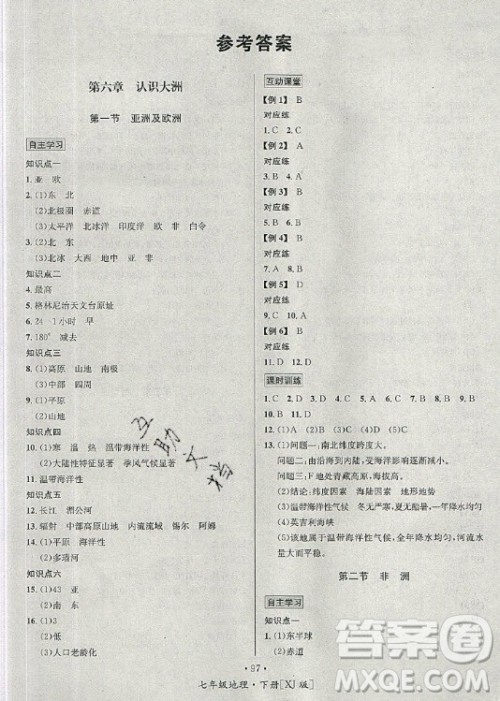 参考答案
第六章 认识大洲
第一节 亚洲及欧洲
自主学习
知识点一
1. 亚 欧
2. (1)东 北
(2)北极圈 赤道
(3)太平洋 北冰洋 印度洋 非 白令
3. (1)北 东
(3)北冰 大西 地中 非
知识点二
4. 最高
5. 格林尼治天文台原址
6. 24 1小时 早
7. 180° 减去
知识点三
8. (1)高原 山地 南极
(3)中部 四周
9. (1)平原
(2)山地
知识点四
10. (1)寒 温 热 温带海洋性
(2)大陆性特征显著 季风气候显著
11. 温带海洋性
知识点五
12. 长江 湄公河
13. 辐射 中部高原山地 内流流域 锡尔 阿姆
14. (1)平原 海洋性
(2)多瑙河
知识点六
15. (1)43 44
(2)南 东
16. (1)3
(2)低
(3)人口老龄化
互动课堂
【例1】 B
对应练
1. C 2. C
【例2】 A
对应练
3. C 4. B
【例3】 B
对应练
5. C 6. B
【例4】 A
对应练
7. D 8. C
【例5】 C
对应练
9. D 10. B
【例6】 C
对应练
11. D 12. D
课时训练
10. B 11. A
12. (1)D (2)A (3)C (4)B
13. (1)问题一:南北纬度跨度大。
问题二:由沿海到内陆,受海洋影响逐渐减小。
问题三:F地处青藏高原,海拔高。
(2)结论:纬度位置、海陆位置、地形。
(4)英吉利海峡
第二节 非 洲
自主学习
1. (1)东半球
(2)赤道
· 97 ·
七年级地理·下册[XJ版]
互助文档